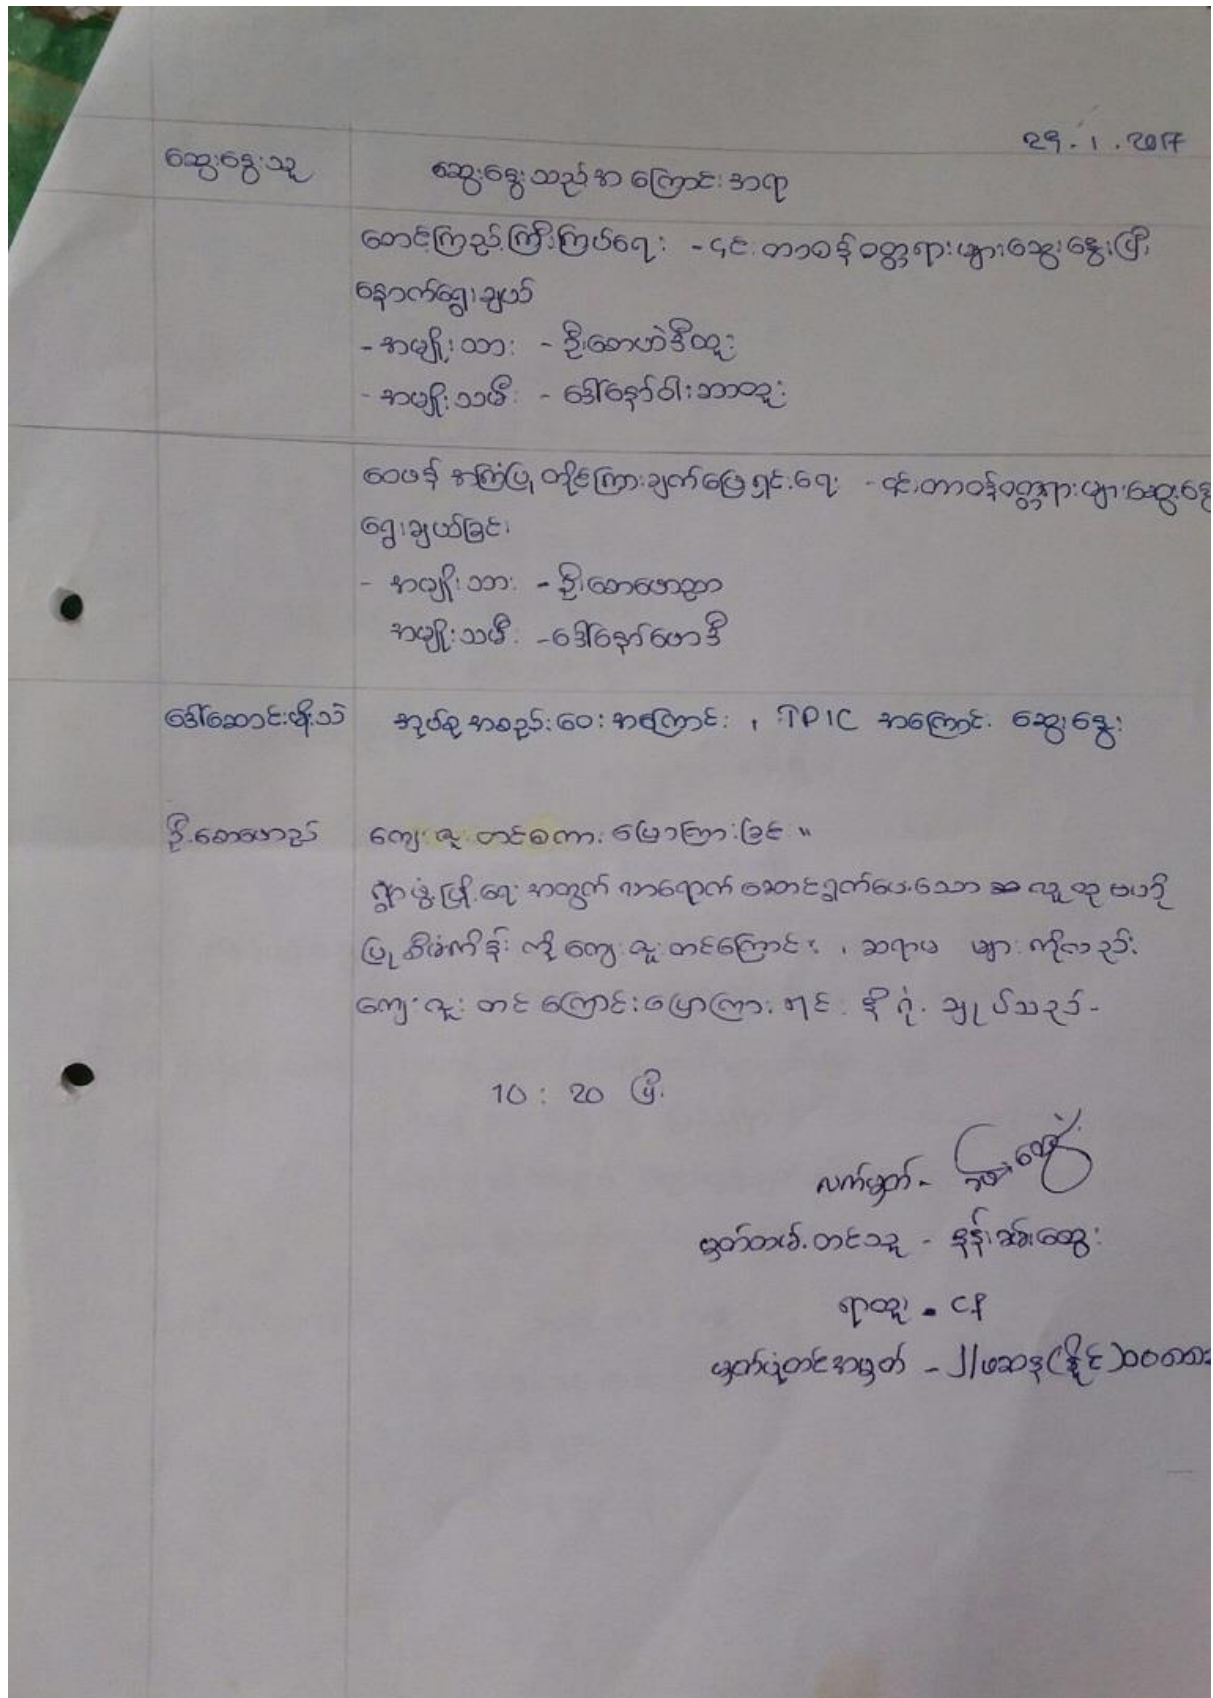 29.1.2017
ဆွေးနွေးသူ ဆွေးနွေးသည့်အကြောင်းအရာ
စောင့်ကြည့်ကြီးကြပ်ရေး - ၎င်းတာဝန်ဝတ္တရားများဆွေးနွေးပြီး
နောက်ရွေးချယ်
- အမျိုးသား - ဦးစောဟဲဒီထူး
- အမျိုးသမီး - ဒေါ်နော်ဝါးဘာထူး
ဝေဖန် အကြံပြု တိုင်ကြားချက်ဖြေရှင်းရေး - ၎င်းတာဝန်ဝတ္တရားများဆွေးနွေ
ရွေးချယ်ခြင်း
- အမျိုးသား - ဦးစောဖောညာ
အမျိုးသမီး - ဒေါ်နော်ဖောဒီ
ဒေါ်ဆောင်းမိုးသဲ အုပ်စုအစည်းဝေးအကြောင်း ၊ TPIC အကြောင်း ဆွေးနွေး
ဦးစောဖောည် ကျေးဇူးတင်စကားပြောကြားခြင်း။
ရွာဖွံ့ဖြိုးရေးအတွက် လာရောက်ဆောင်ရွက်ပေးသော လူထုဗဟို
ပြုစီမံကိန်းကိုကျေးဇူးတင်ကြောင်း ၊ ဆရာမ များကိုလည်း
ကျေးဇူးတင်ကြောင်းပြောကြားရင်း နိဂုံးချုပ်သည်-
10 : 20 ပြီး
လက်မှတ် -
မှတ်တမ်းတင်သူ - နန်းခမ်းထွေး
ရာထူး - CF
မှတ်ပုံတင်အမှတ် - ၂/ဖဆန(နိုင်)